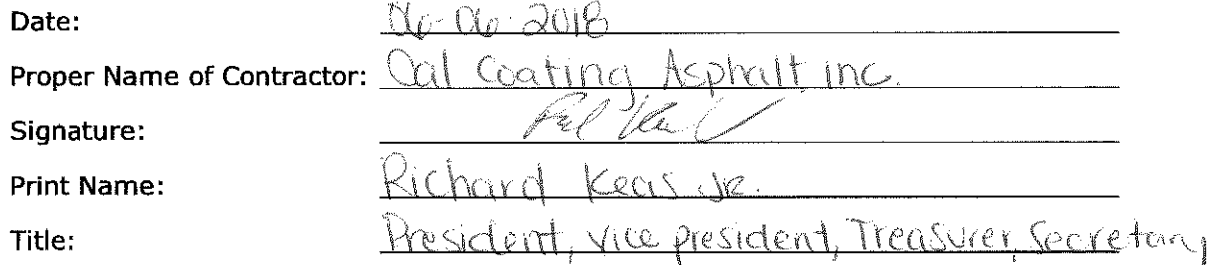 Date: 06-06-2018
Proper Name of Contractor: Cal Coating Asphalt inc.
Signature:
Print Name: Richard Keas Jr.
Title: President, vice president, Treasurer, Secretary